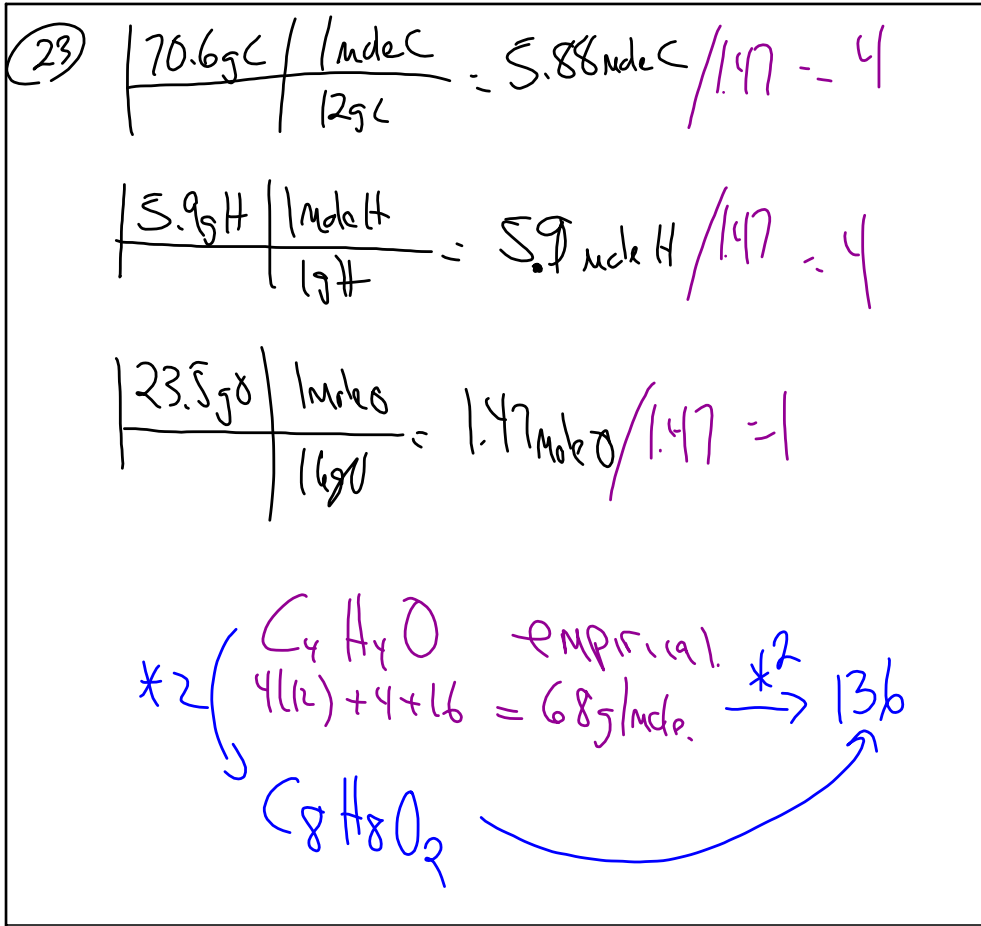 23
70.6gC | 1 mole C = 5.88 mole C / 1.47 = 4
12gC
5.9gH | 1 mole H = 5.9 mole H / 1.47 = 4
1gH
23.5gO | 1 mole O = 1.47 mole O / 1.47 = 1
16gO
C₄H₄O empirical
*2 4(12) + 4 + 16 = 68g/mole. *2 → 136
C₈H₈O₂